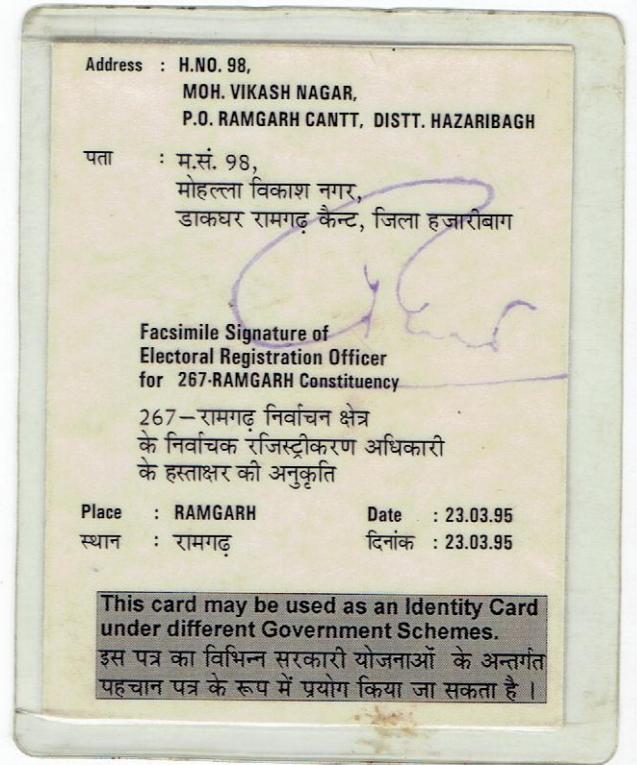 Address : H.NO. 98,
MOH. VIKASH NAGAR,
P.O. RAMGARH CANTT, DISTT. HAZARIBAGH
पता : म.सं. 98,
मोहल्ला विकाश नगर,
डाकघर रामगढ़ कैन्ट, जिला हजारीबाग
Facsimile Signature of
Electoral Registration Officer
for 267-RAMGARH Constituency
267–रामगढ़ निर्वाचन क्षेत्र
के निर्वाचक रजिस्ट्रीकरण अधिकारी
के हस्ताक्षर की अनुकृति
Place : RAMGARH Date : 23.03.95
स्थान : रामगढ़ दिनांक : 23.03.95
This card may be used as an Identity Card
under different Government Schemes.
इस पत्र का विभिन्न सरकारी योजनाओं के अन्तर्गत
पहचान पत्र के रूप में प्रयोग किया जा सकता है ।